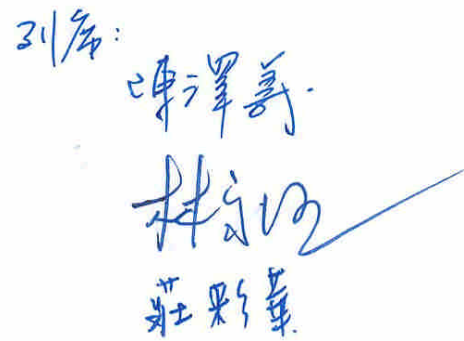 列席：
陳澤義
林
莊彩華